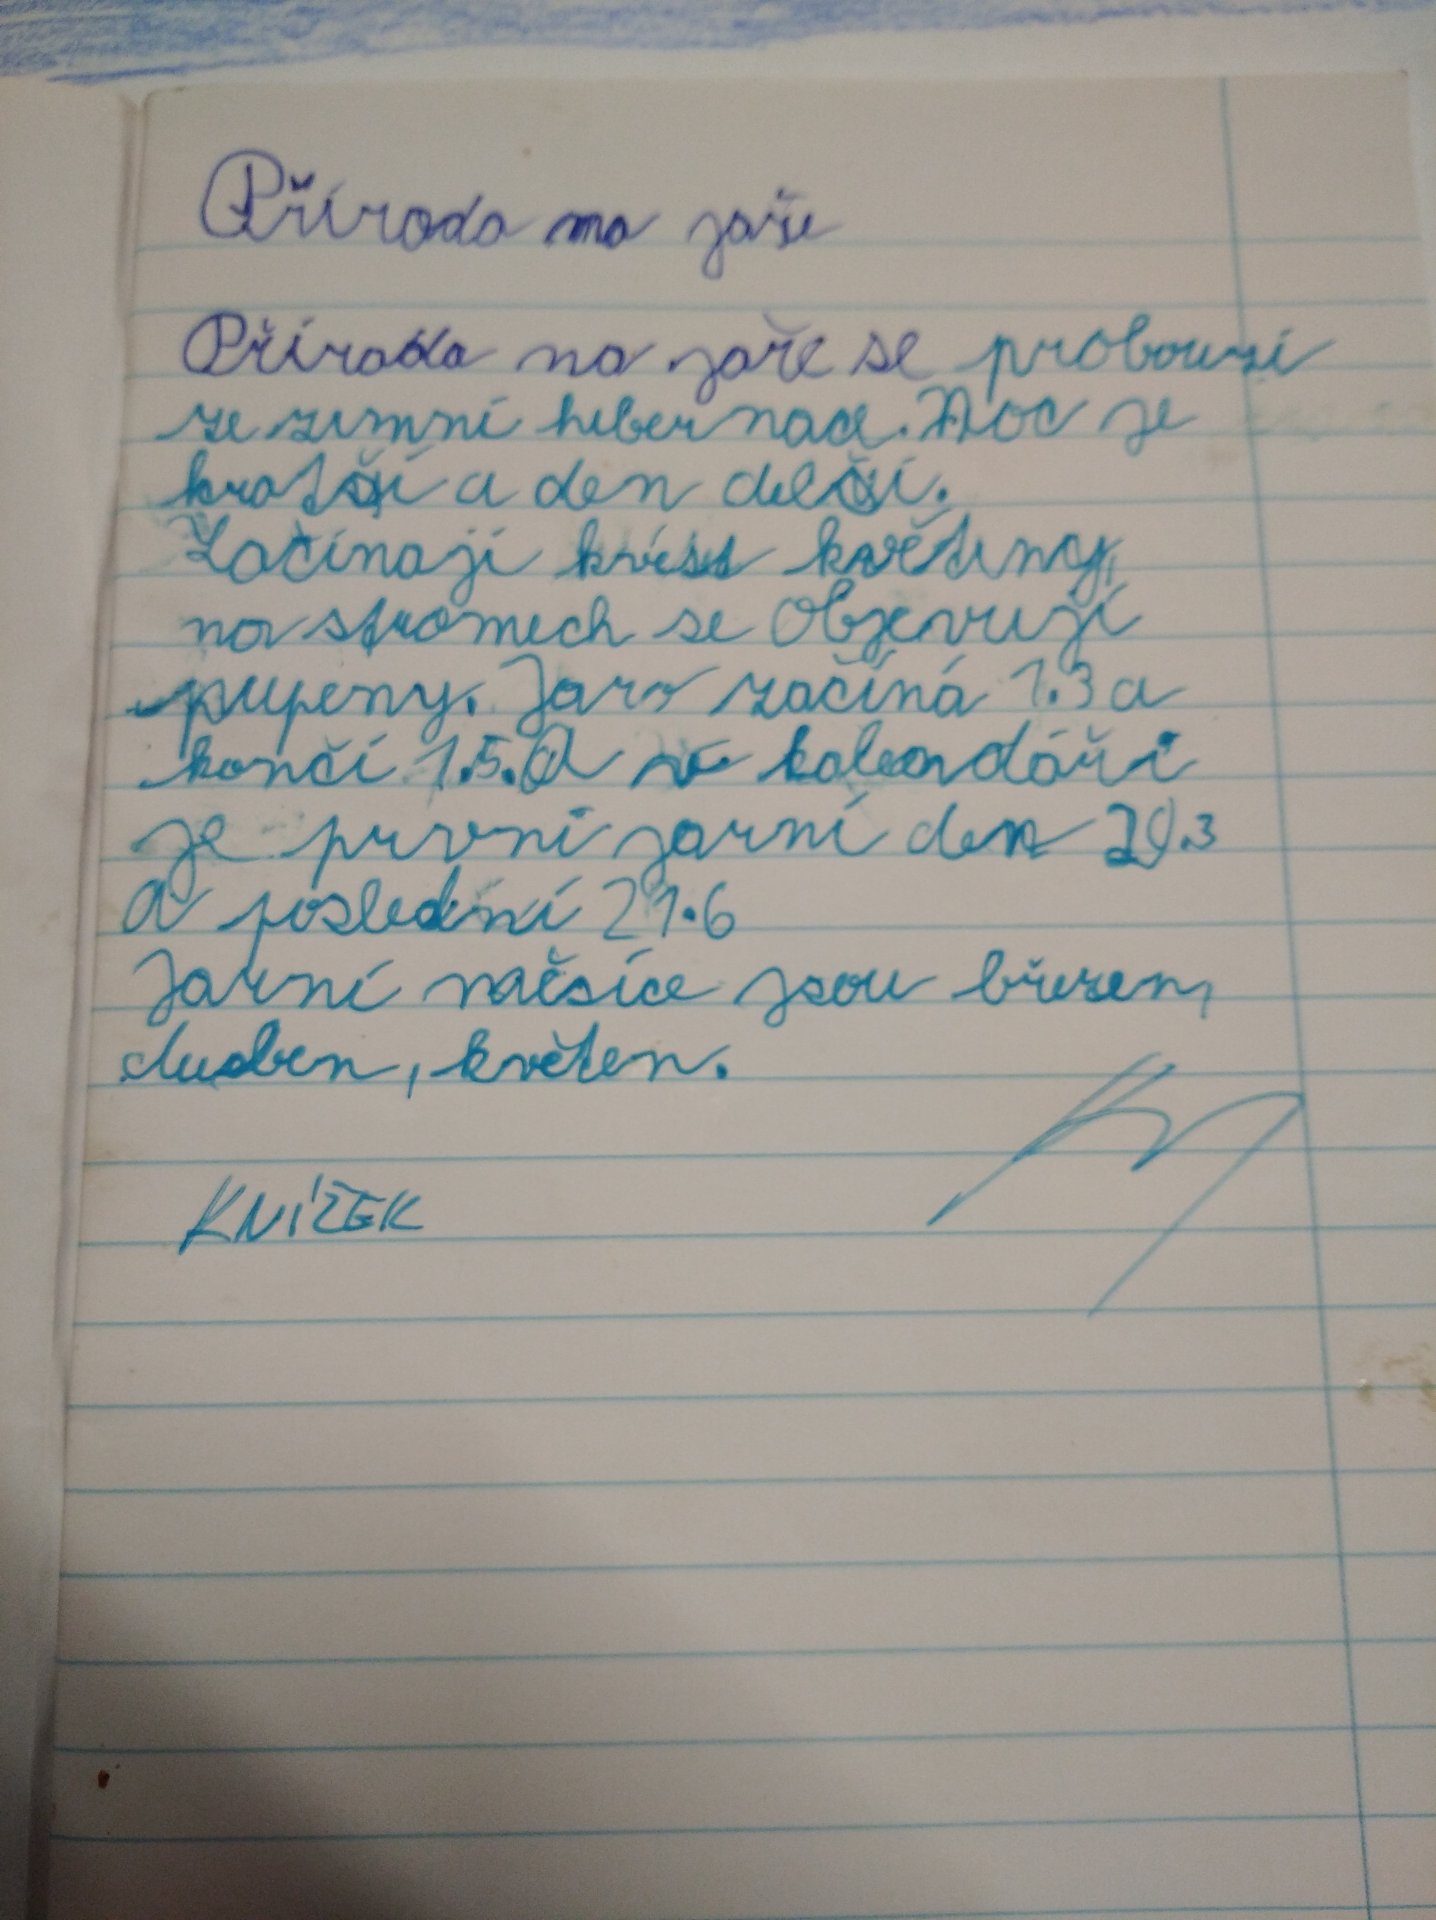 Příroda na jaře
Příroda na jaře se probouzí
ze zimní hibernace. Noc je
kratší a den delší.
Začínají kvést květiny,
na stromech se objevují
pupeny. Jaro začíná 1.3 a
končí 1.5. A v kalendáři
je první jarní den 20.3
A poslední 21.6
Jarní měsíce jsou březen,
duben, květen.
KNÍŽEK